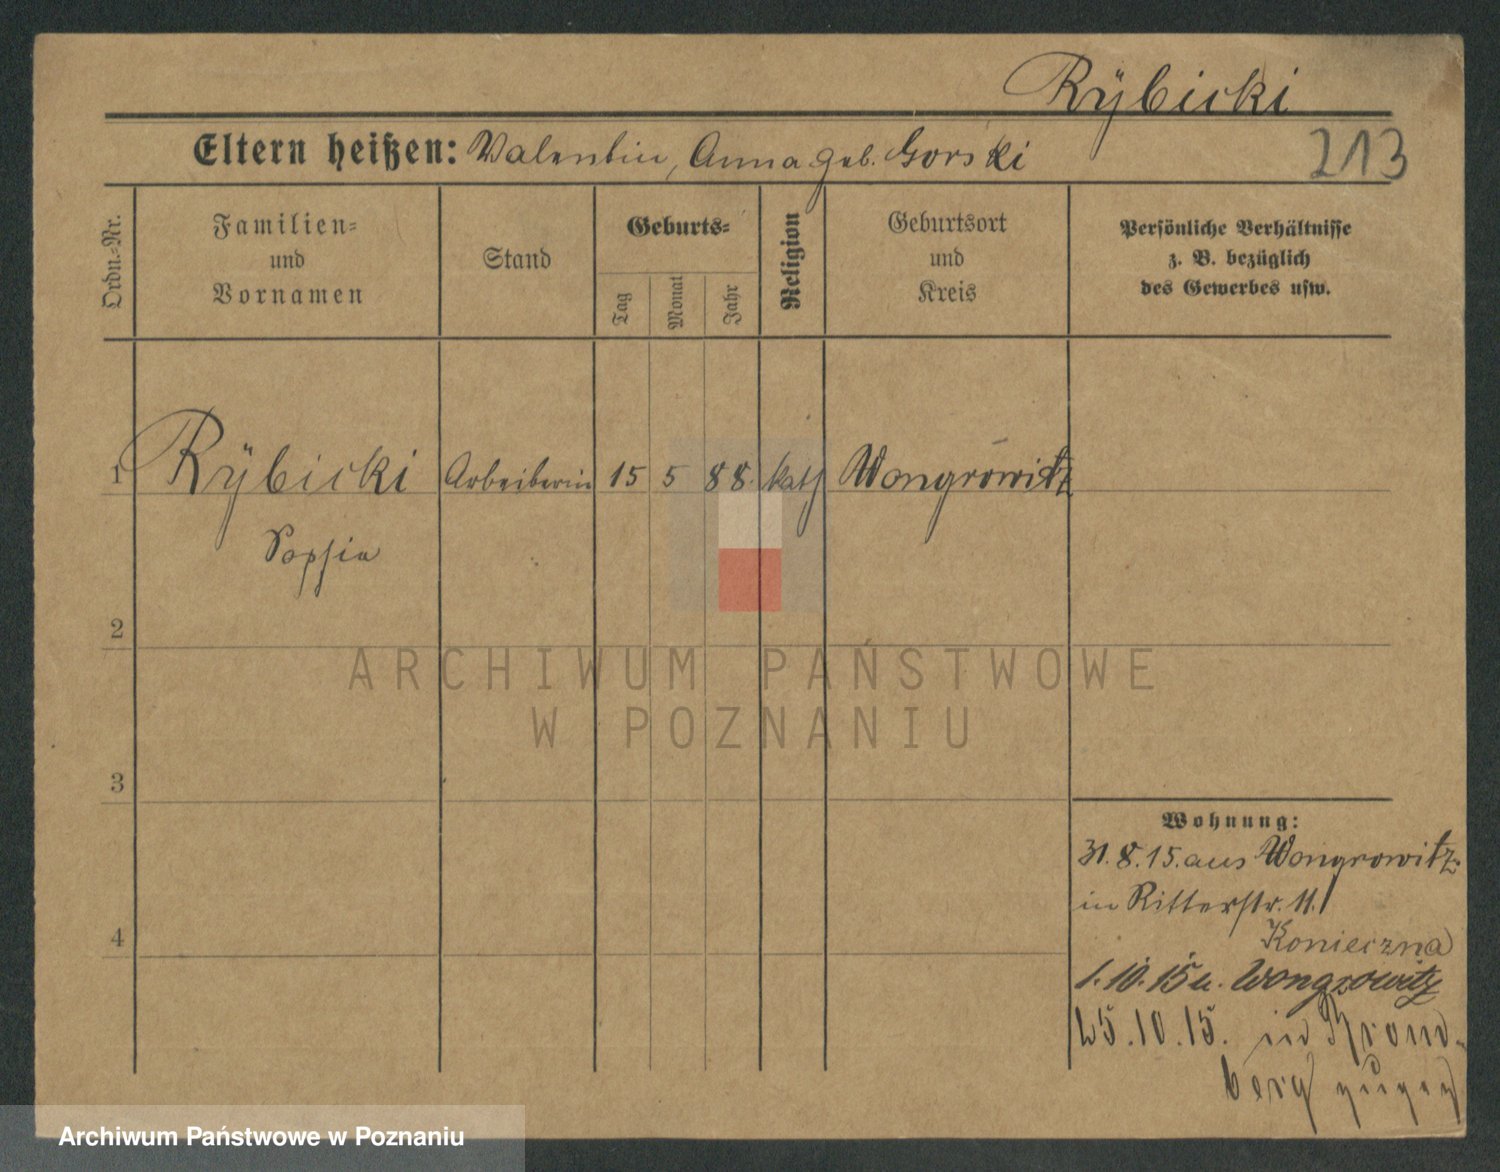 Rÿbicki
Eltern heißen: Valentin, Anna geb. Gorski
213
Ordn.-Nr.
Familien-
und
Vornamen
Stand
Geburts-
Tag
Monat
Jahr
Religion
Geburtsort
und
Kreis
Persönliche Verhältnisse
z. B. bezüglich
des Gewerbes usw.
1 Rÿbicki Arbeiterin 15 5 88. kath Wongrowitz
Sophia
2
ARCHIWUM PAŃSTWOWE
W POZNANIU
3
4
Wohnung:
31. 8. 15. aus Wongrowitz
in Ritterstr. 11.
Konieczna
1. 10. 15 n. Wongrowitz
25. 10. 15. in Brom-
berg zugez
Archiwum Państwowe w Poznaniu